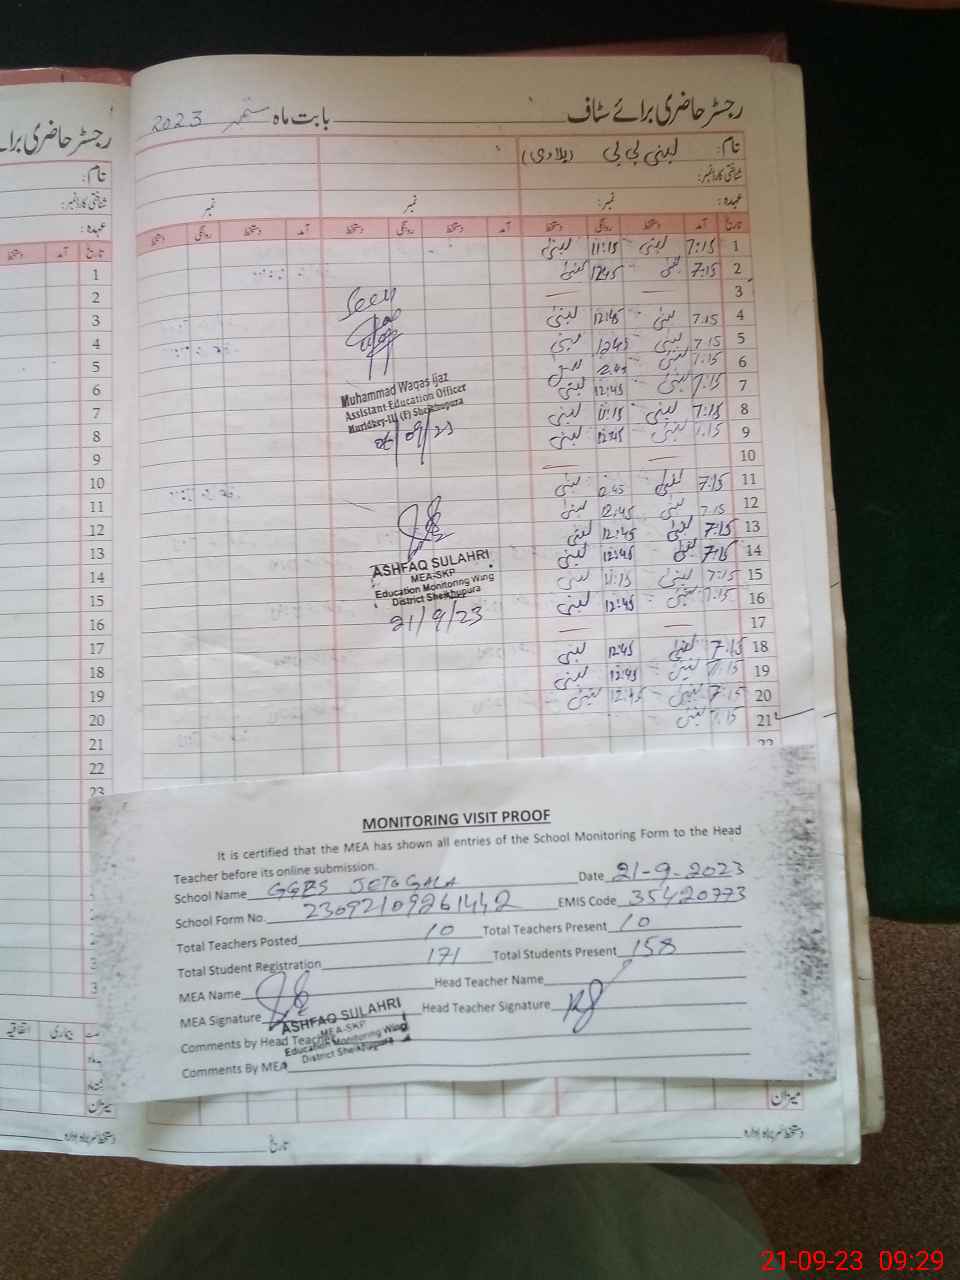 رجسٹر حاضری برائے سٹاف بابت ماہ ستمبر 2023
رجسٹر حاضری برائے
نام: لبنیٰ بی بی
نام:
شناختی کارڈ نمبر:
شناختی کارڈ نمبر:
عہدہ: نمبر: نمبر نمبر
عہدہ:
تاریخ آمد دستخط روانگی دستخط آمد دستخط روانگی دستخط آمد دستخط روانگی دستخط
تاریخ آمد دستخط
1 7:15 لبنیٰ 11:15 لبنیٰ
2 7:15 لبنیٰ 12:45 لبنیٰ
3 — —
4 7:15 لبنیٰ 12:45 لبنیٰ
5 7:15 لبنیٰ 12:45 لبنیٰ
6 7:15 لبنیٰ 2:45
7 7:15 لبنیٰ 12:45 لبنیٰ
8 7:15 لبنیٰ 11:15 لبنیٰ
9 7:15 لبنیٰ 12:45 لبنیٰ
10 — —
11 7:15 لبنیٰ 2:45 لبنیٰ
12 7:15 لبنیٰ 12:45 لبنیٰ
13 7:15 لبنیٰ 12:45 لبنیٰ
14 7:15 لبنیٰ 12:45 لبنیٰ
15 7:15 لبنیٰ 11:15 لبنیٰ
16 7:15 لبنیٰ 12:45 لبنیٰ
17 — —
18 7:15 لبنیٰ 12:45 لبنیٰ
19 7:15 لبنیٰ 12:45 لبنیٰ
20 7:15 لبنیٰ 12:45 لبنیٰ
21 7:15 لبنیٰ
22
1
2
3
4
5
6
7
8
9
10
11
12
13
14
15
16
17
18
19
20
21
22
23
Seen
Muhammad Waqas Ijaz
Assistant Education Officer
Muridkey-III (F) Sheikhupura
06/09/23
ASHFAQ SULAHRI
MEA-SKP
Education Monitoring Wing
District Sheikhupura
21/9/23
MONITORING VISIT PROOF
It is certified that the MEA has shown all entries of the School Monitoring Form to the Head
Teacher before its online submission.
School Name GGPS JOTO GALA Date 21-9-2023
School Form No. 23092109261442 EMIS Code 35420773
Total Teachers Posted 10 Total Teachers Present 10
Total Student Registration 171 Total Students Present 158
MEA Name Head Teacher Name
MEA Signature Head Teacher Signature
ASHFAQ SULAHRI
MEA-SKP
Education Monitoring Wing
District Sheikhupura
Comments by Head Teacher
Comments By MEA
اتفاقیہ بیماری
میزان
میزان
تاریخ
دستخط سربراہ ادارہ
دستخط سربراہ ادارہ
21-09-23 09:29